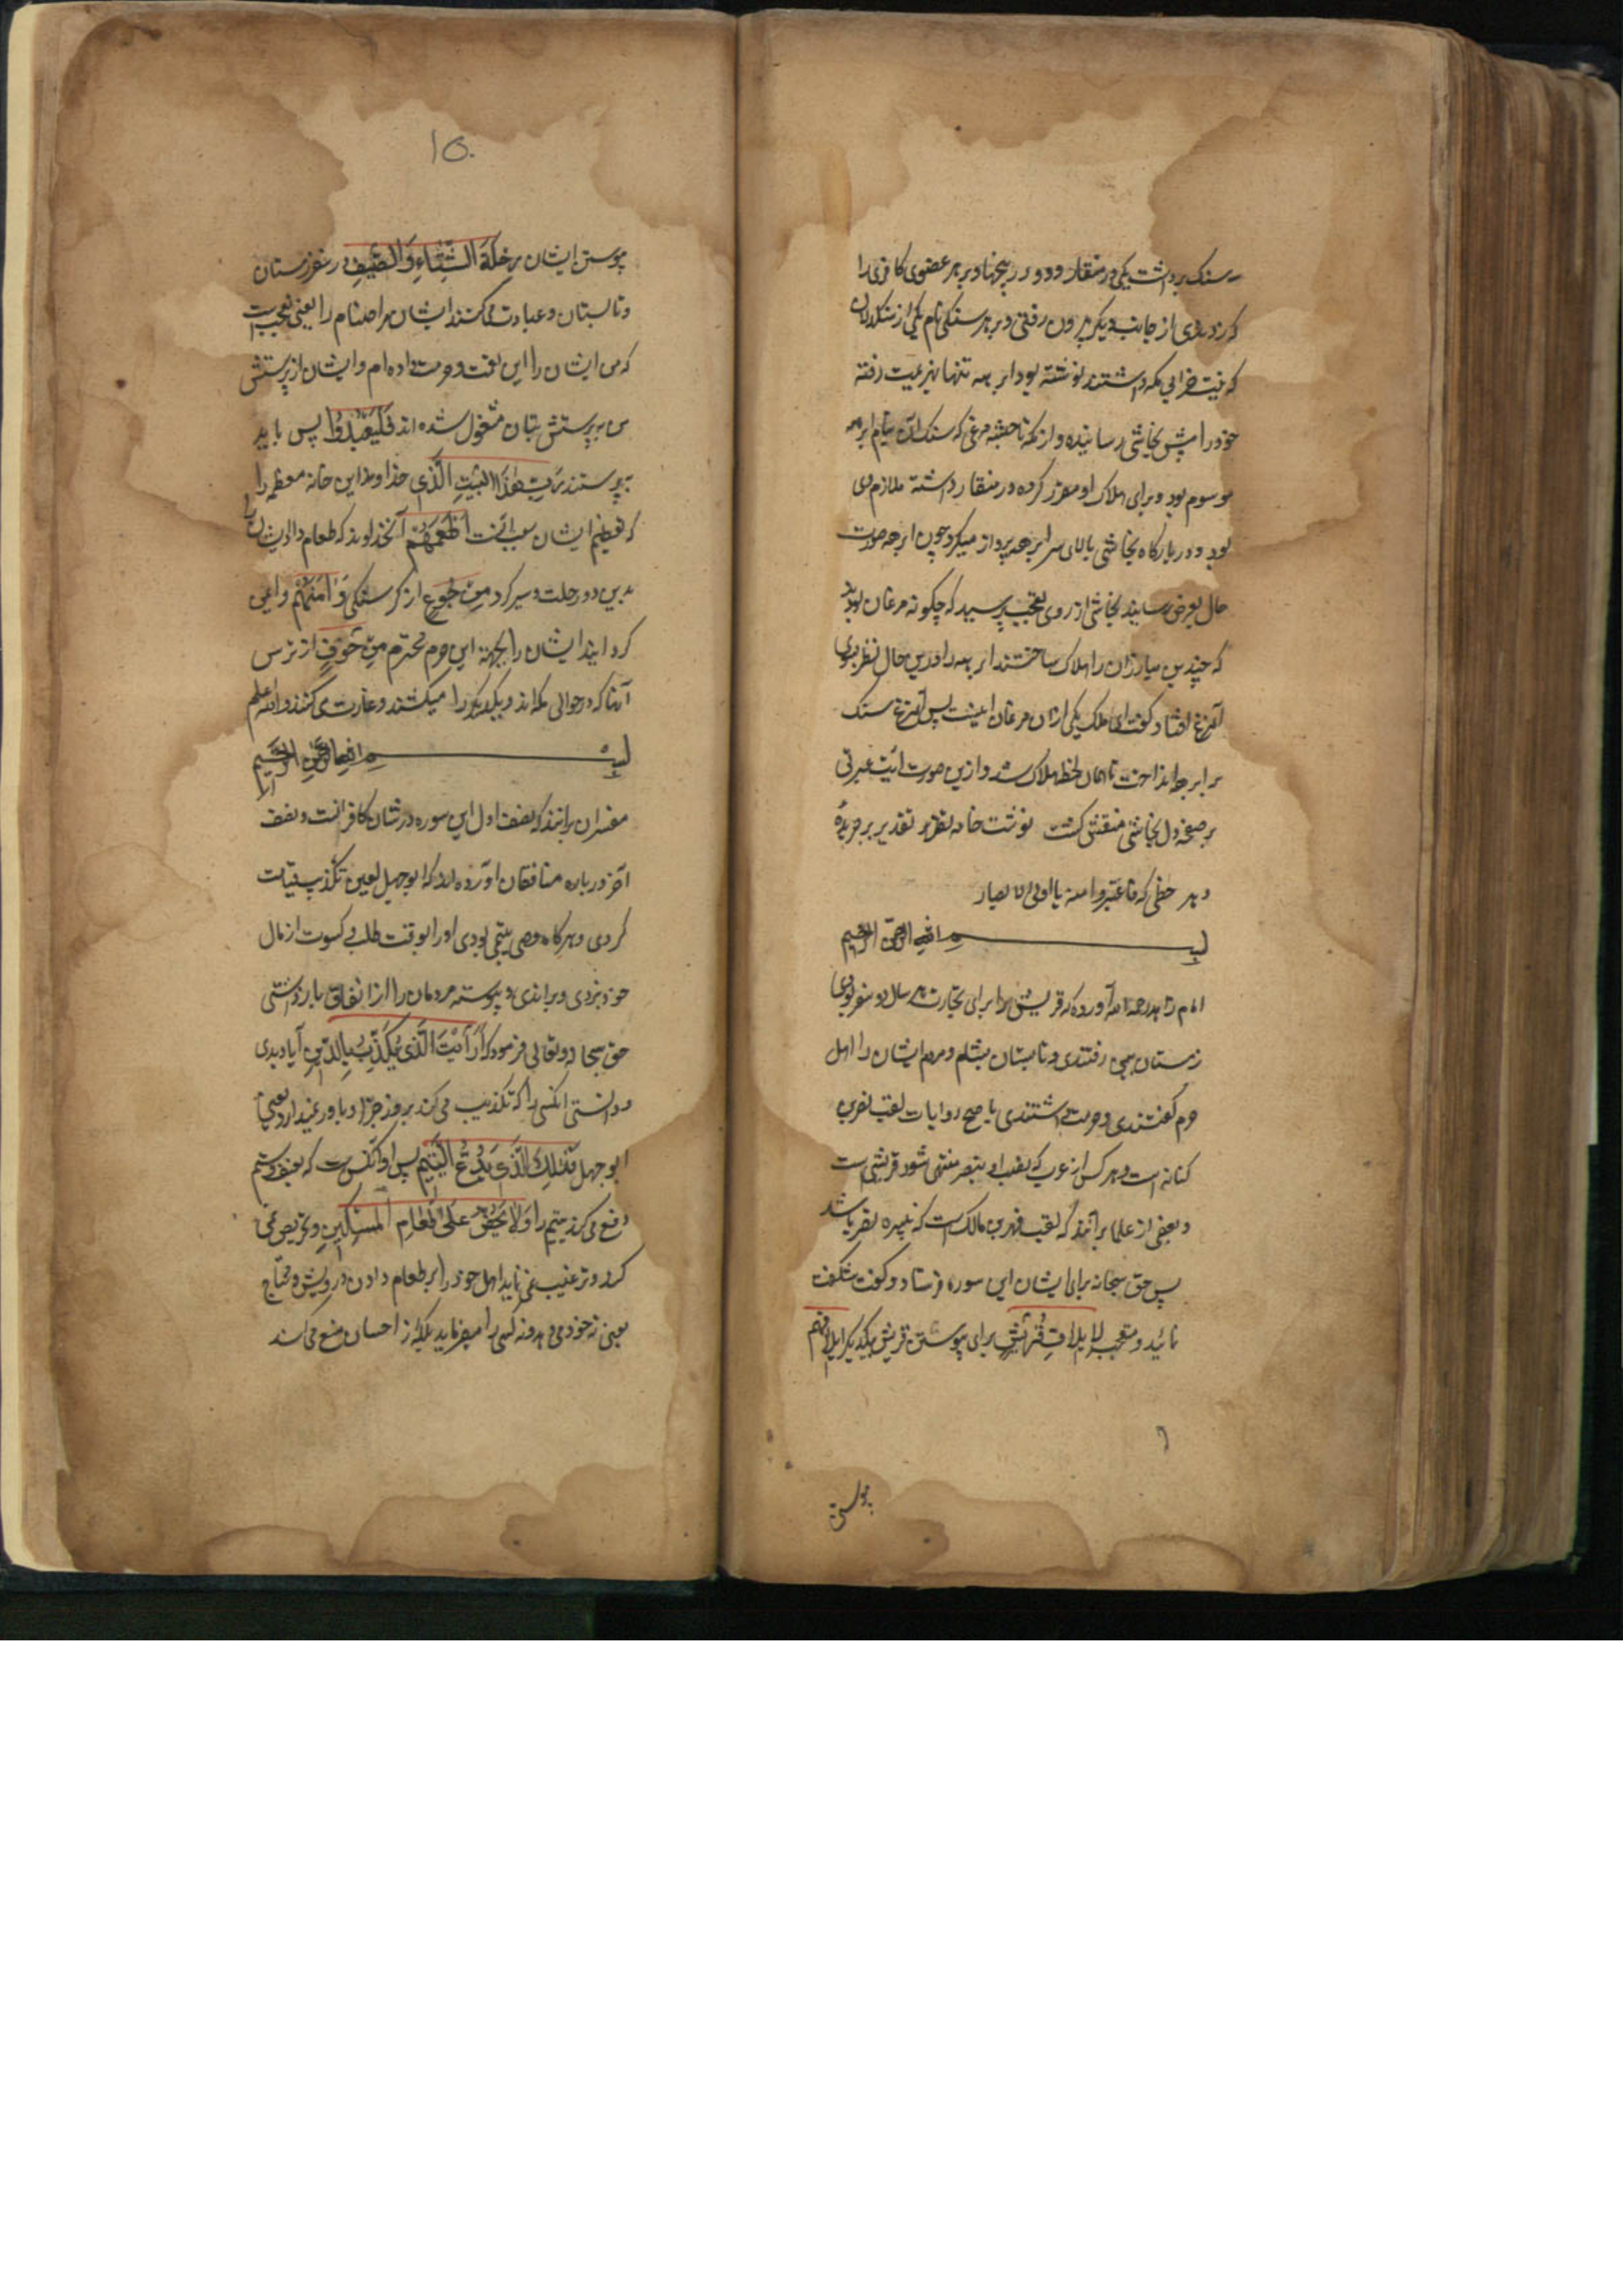 سه سنک برداشت یکی در منقار و دو در پنجها و بر هر عضوی کافری را
که زدندی از جانب دیکر بیرون رفتی و بر هر سنکی نام یکی از سنکدلان
که نیت خرابی مکه داشتند نوشته بود ابرهه تنها بهزیمت رفته
خود را پیش نجاشی رسانیده و از مکه تا حبشه مرغی که سنک آن بنام ابرهه
موسوم بود و برای اهلاک او مقرر کرده در منقار داشته ملازم وی
بود و در بارکاه نجاشی بالای سر ابرهه پرواز میکرد چون ابرهه صورت
حال بعرض رسانید نجاشی از روی تعجب پرسید که چکونه مرغان بودند
که چندین مبارزان را هلاک ساختند ابرهه را درین حال نظر بروی
آن مرغ افتاد کفت ای ملک یکی از آن مرغان اینست پس آن مرغ سنک
بر ابرهه انداخت تا همان لحظه هلاک شد و ازین صورت آیت عبرتی
بر صفحه دل نجاشی منقش کشت نوشت خامه تقریر تقدیر بر جریده
دهر خطی که فاعتبروا منه یا اولی الابصار
بسم الله الرحمن الرحیم
امام زاهد رحمه الله آورده که قریش را برای تجارت هر سال دو سفر بودی
زمستان بیمن رفتندی و تابستان بشام و مردم ایشان را اهل
حرم کفتندی و حرمت داشتندی باصح روایات لقب نضر بن
کنانه است و هر کس از عرب که نسب او بنضر منتهی شود قریشی است
و بعضی از علما برآنند که لقب فهر بن مالک است که نبیره نضر باشد
پس حق سبحانه برای ایشان این سوره فرستاد و کفت شکفت
نائید و متعجب لایلاف قریش برای پیوستن قریش بیکدیکر ایلافهم
٦
پیوستن
۱۵۰
پیوستن ایشان بر رحلة الشتاء والصیف در سفر زمستان
و تابستان و عبادت می کنند ایشان مر اصنام را یعنی تعجب است
که من ایشان را این نعمت و حرمت داده ام و ایشان از پرستش
من بپرستش بتان مشغول شده اند فلیعبدوا پس باید
بپرستند رب هذا البیت الذی خداوند این خانه معظم را
که تعظیم ایشان بسبب آنست اطعمهم آنخداوند که طعام داد ایشان را
بدین دو رحلت و سیر کرد من جوع از کرسنکی وآمنهم و ایمن
کردانید ایشان را بجهت این حرم محترم من خوف از ترس
آنها که در حوالی مکه اند و یکدیکر را میکشند و غارت می کنند والله اعلم
بسم الله الرحمن الرحیم
مفسران برانند که نصف اول این سوره در شان کافرانست و نصف
آخر درباره منافقان آورده اند که ابوجهل لعین تکذیب قیامت
کردی و هرکاه وصی یتیمی بودی او را بوقت طلب کسوت از مال
خود بزدی و براندی و پیوسته مردمان را از انفاق بازداشتی
حق سبحانه و تعالی فرمود که أرأیت الذی یکذب بالدین آیا دیدی
و دانستی آنکس را که تکذیب می کند بروز جزا و باور نمیدارد یعنی
ابوجهل فذلک الذی یدع الیتیم پس او آنکس است که بعنف و ستم
دفع می کند یتیم را ولا یحض علی طعام المسکین و تحریص نمی
کند و ترغیب نمی نماید اهل خود را بر طعام دادن درویش و محتاج
یعنی نه خود می دهد و نه کسی را میفرماید بلکه از احسان منع می کند